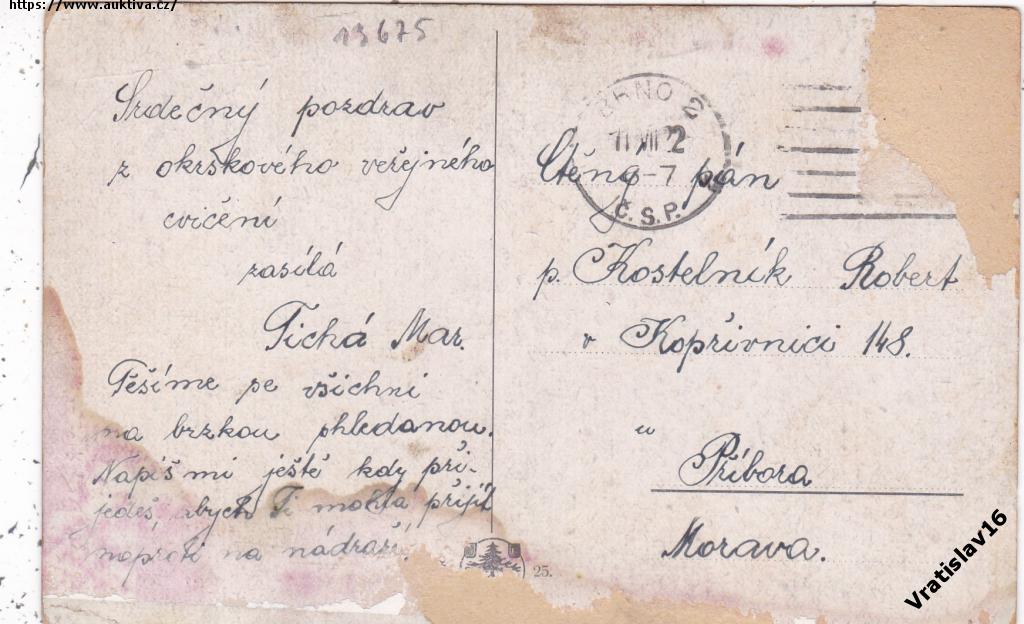 https://www.auktiva.cz/
19675
Srdečný pozdrav
z okrškového veřejného
cvičení
zasílá
Tichá Mar.
Těšíme se všichni
na brzkou shledanou.
Napiš mi ještě kdy při-
jedeš, abych Ti mohla přijít
naproti na nádraží.
BRNO 2
11 VII 22
6-7
Č.S.P.
Ctěný pán
p. Kostelník Robert
v Kopřivnici 148.
u
Příbora
Morava.
25.
Vratislav16